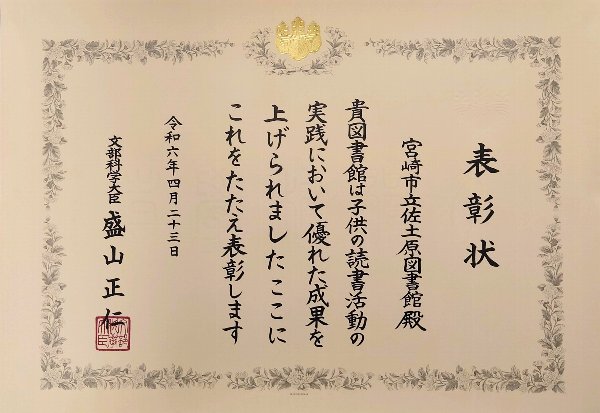 表彰状
宮崎市立佐土原図書館殿
貴図書館は子供の読書活動の
実践において優れた成果を
上げられましたここに
これをたたえ表彰します
令和六年四月二十三日
文部科学大臣 盛山正仁